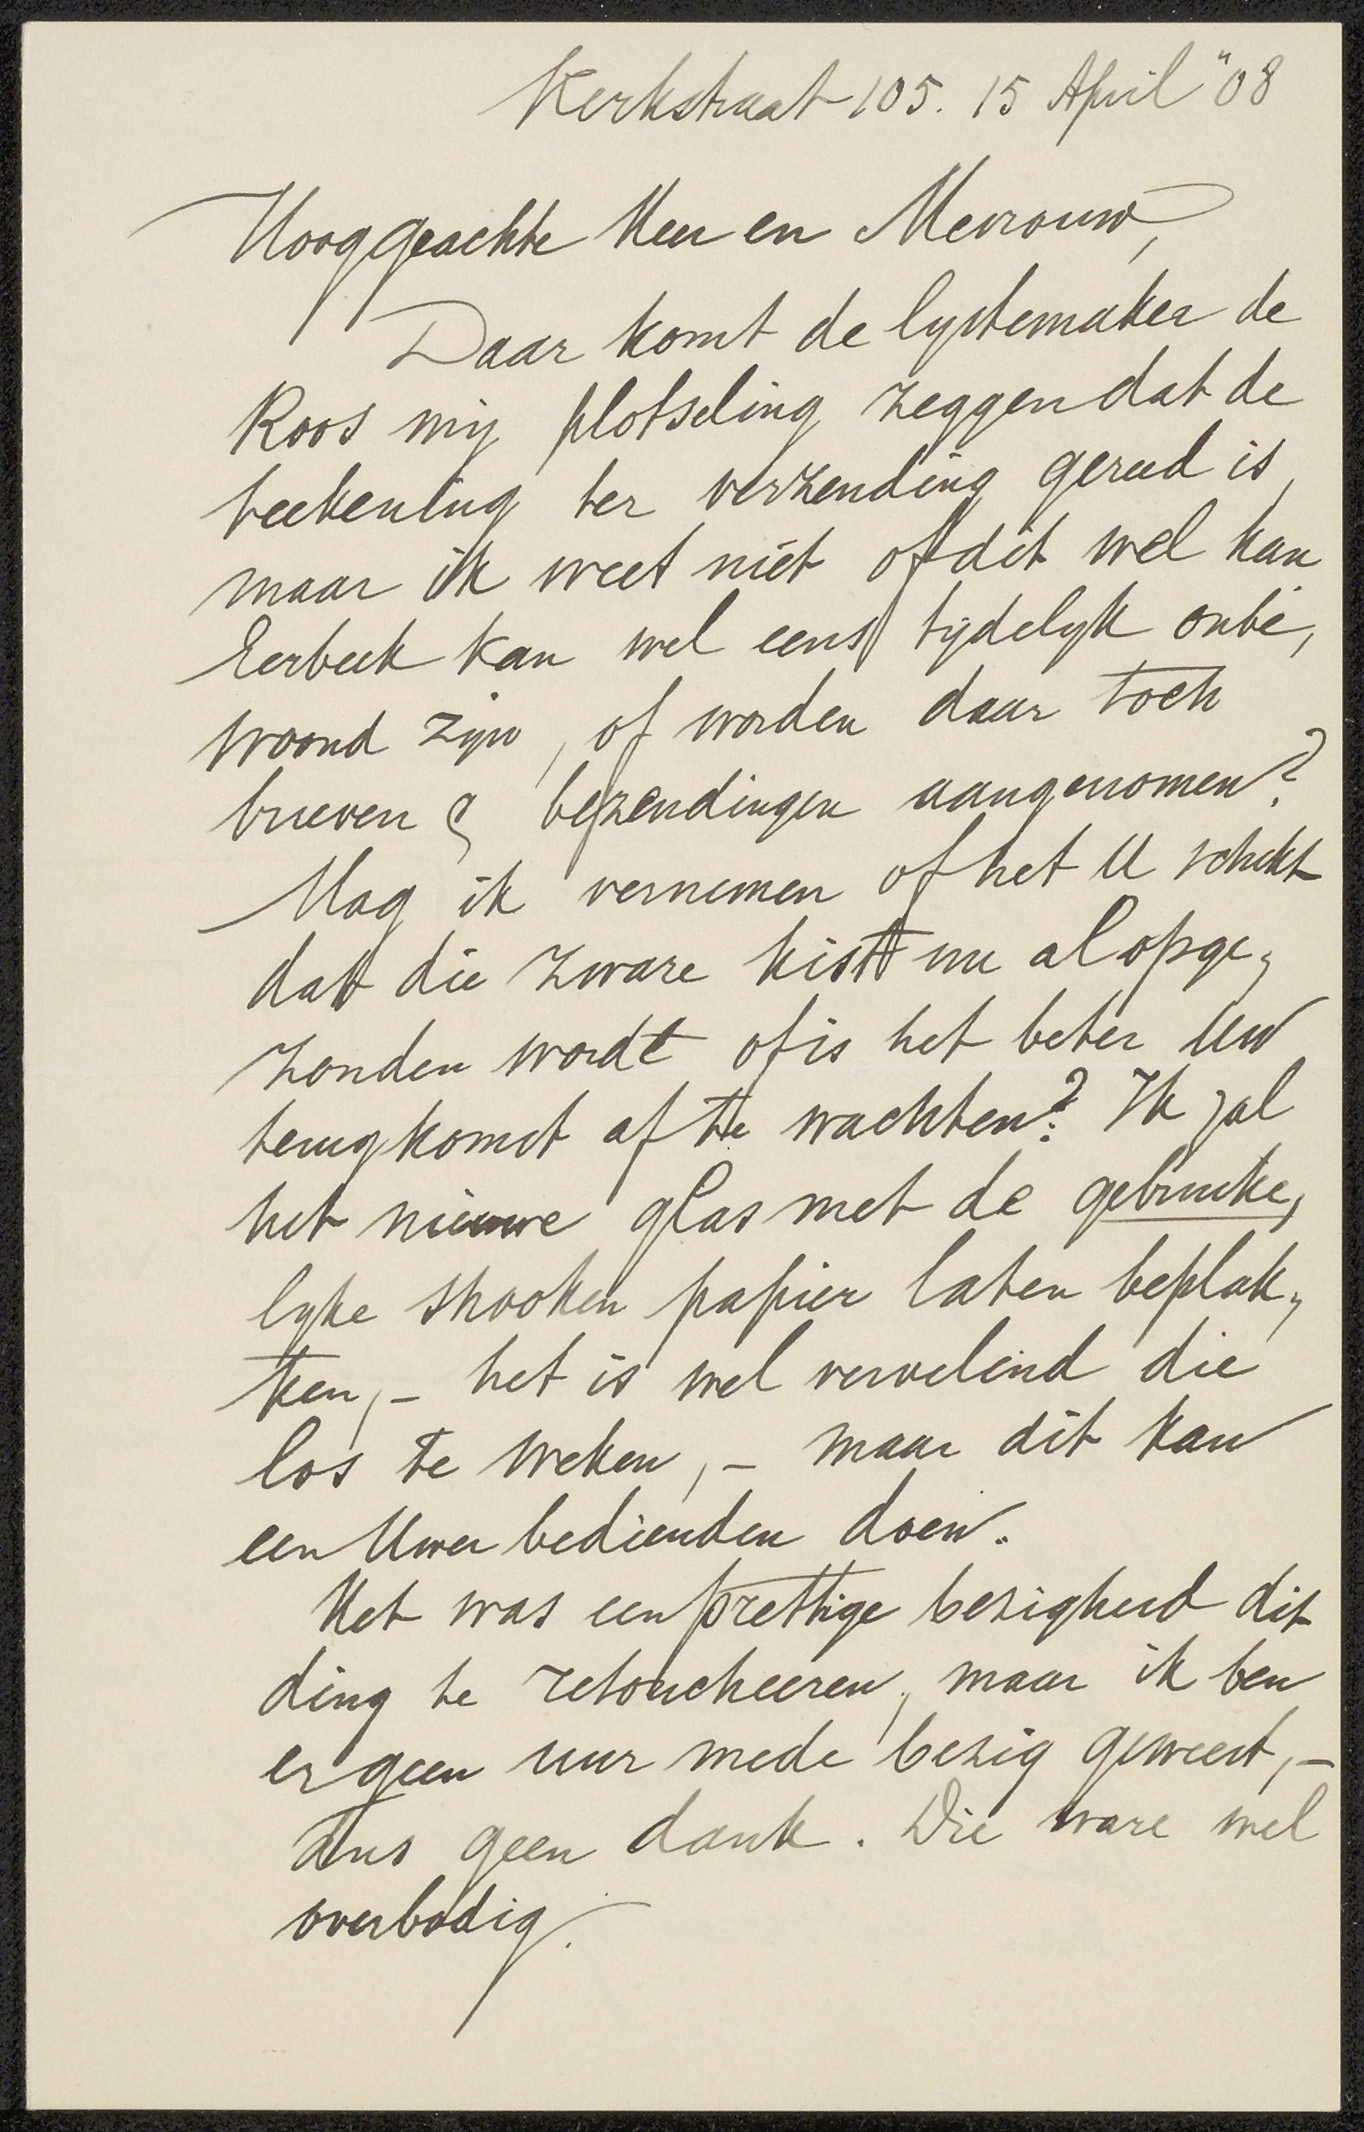 Kerkstraat 105. 15 April "08
Hooggeachte Heer en Mevrouw,
Daar komt de lystemaker de
Roos mij plotseling zeggen dat de
teekening ter verzending gereed is,
maar ik weet niet of dit wel kan
Eerbeek kan wel eens tijdelyk onbe,
woond zijn, of worden daar toch
brieven & bezendingen aangenomen?
Mag ik vernemen of het U schikt
dat die zware kist nu al opge,
zonden wordt of is het beter Uw
terugkomst af te wachten? Ik zal
het nieuwe glas met de gebruike,
lyke strooken papier laten beplak,
ken, – het is wel vervelend die
los te weken, – maar dit kan
een Uwer bedienden doen.
Het was een prettige bezigheid dit
ding te retoucheeren, maar ik ben
er geen uur mede bezig geweest, –
dus geen dank. Die ware wel
overbodig.